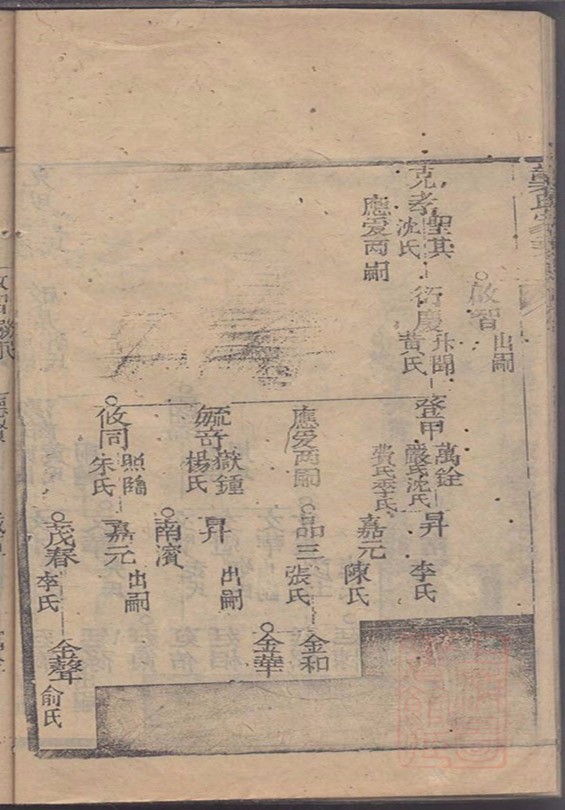 啟智
出嗣
克孝
聖其
沈氏
應爰兩嗣
衍慶
升聞
黄氏
登甲
萬銓
嚴氏沈氏
費氏李氏
應爰兩嗣
毓奇
嶽鍾
楊氏
攸同
照臨
朱氏
昇
李氏
嘉元
陳氏
品三
張氏
昇
出嗣
南濱
嘉元
出嗣
茂春
李氏
金和
金華
金聲
俞氏